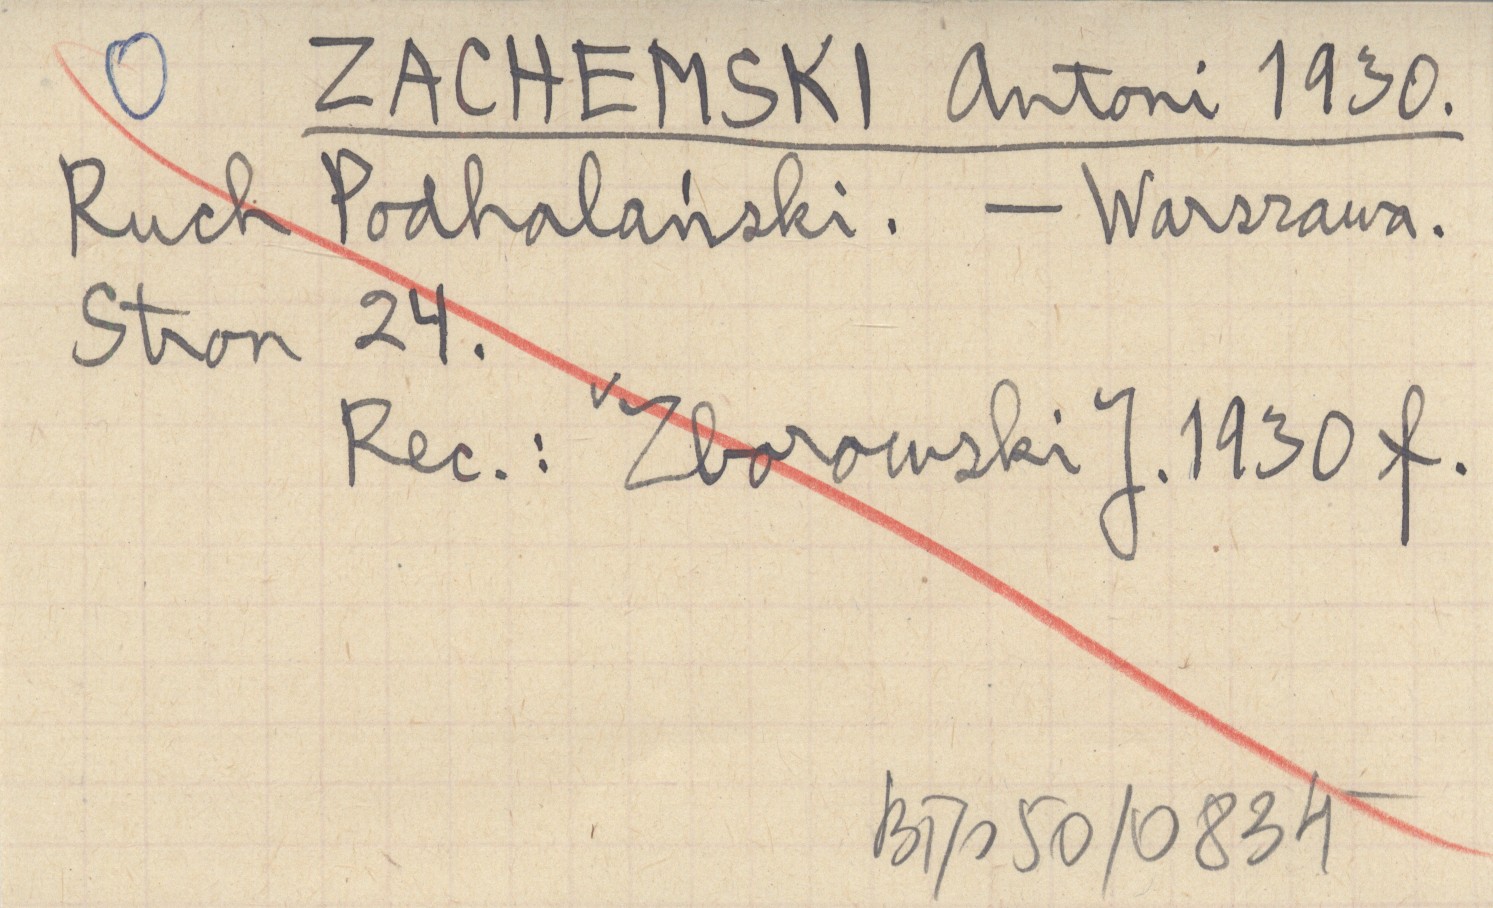 O ZACHEMSKI Antoni 1930.
Ruch Podhalański. — Warszawa.
Stron 24.
Rec.: Zborowski J. 1930 f.
50/0834